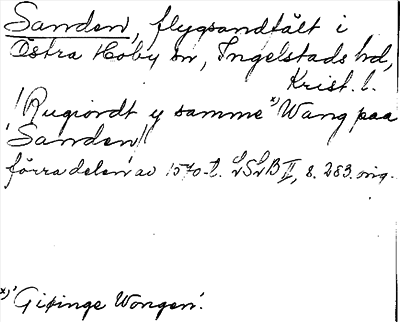 Sanden, flygsandfält i
Östra Hoby sn, Ingelstads hd,
Krist. l.
'Rugiordt y samme x) Wang paa
Sanden'
förra delen av 1570-t. LSLB II, s. 283. orig.
x) 'Gisinge Wongen'.